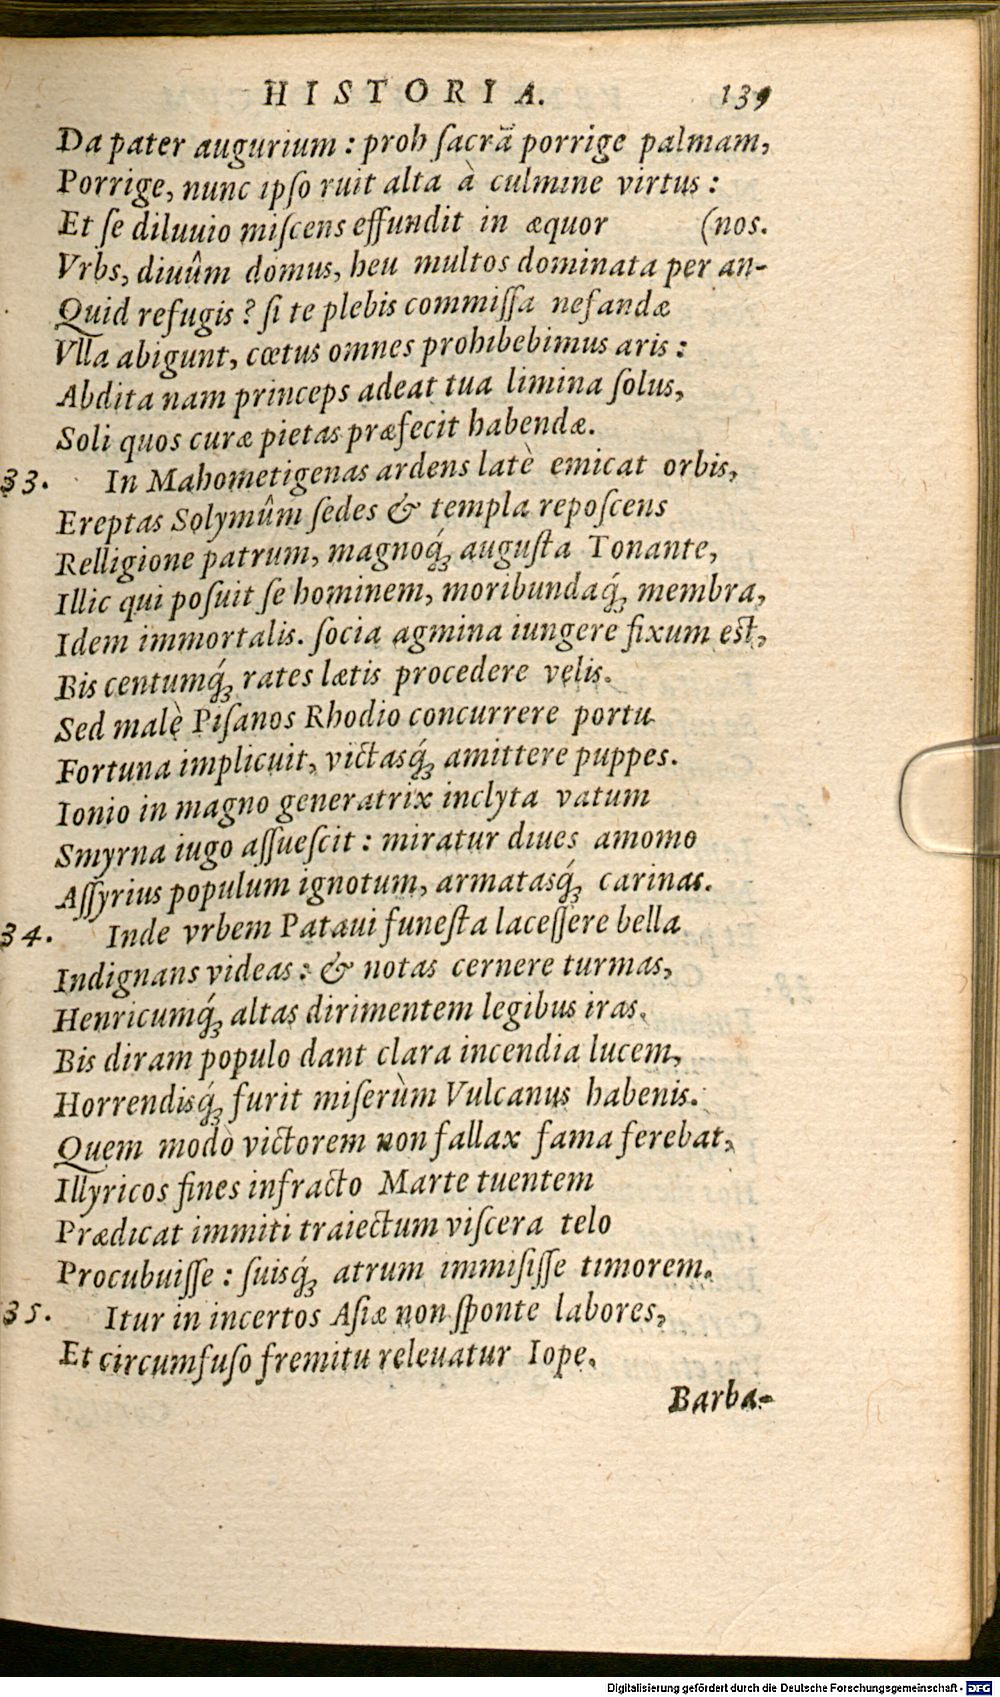 HISTORIA. 139
Da pater augurium : proh ſacrā porrige palmam,
Porrige, nunc ipſo ruit alta à culmine virtus :
Et ſe diluuio miſcens effundit in æquor (nos.
Vrbs, diuûm domus, heu multos dominata per an-
Quid refugis ? ſi te plebis commiſſa nefandæ
Vlla abigunt, cœtus omnes prohibebimus aris :
Abdita nam princeps adeat tua limina ſolus,
Soli quos curæ pietas præfecit habendæ.
33. In Mahometigenas ardens latè emicat orbis,
Ereptas Solymûm ſedes & templa repoſcens
Relligione patrum, magnoq́ꝫ auguſta Tonante,
Illic qui poſuit ſe hominem, moribundaq́ꝫ membra,
Idem immortalis. ſocia agmina iungere fixum eſt,
Bis centumq́ꝫ rates lætis procedere velis.
Sed malè Piſanos Rhodio concurrere portu
Fortuna implicuit, victasq́ꝫ amittere puppes.
Ionio in magno generatrix inclyta vatum
Smyrna iugo aſſueſcit : miratur diues amomo
Aſſyrius populum ignotum, armatasq́ꝫ carinas.
34. Inde vrbem Pataui funeſta laceſſere bella
Indignans videas : & notas cernere turmas,
Henricumq́ꝫ altas dirimentem legibus iras.
Bis diram populo dant clara incendia lucem,
Horrendisq́ꝫ furit miſerùm Vulcanus habenis.
Quem modò victorem non fallax fama ferebat,
Illyricos fines infracto Marte tuentem
Prædicat immiti traiectum viſcera telo
Procubuiſſe : ſuisq́ꝫ atrum immiſiſſe timorem.
35. Itur in incertos Aſiæ non ſponte labores,
Et circumfuſo fremitu releuatur Iope,
Barba-
Digitalisierung gefördert durch die Deutsche Forschungsgemeinschaft - DFG